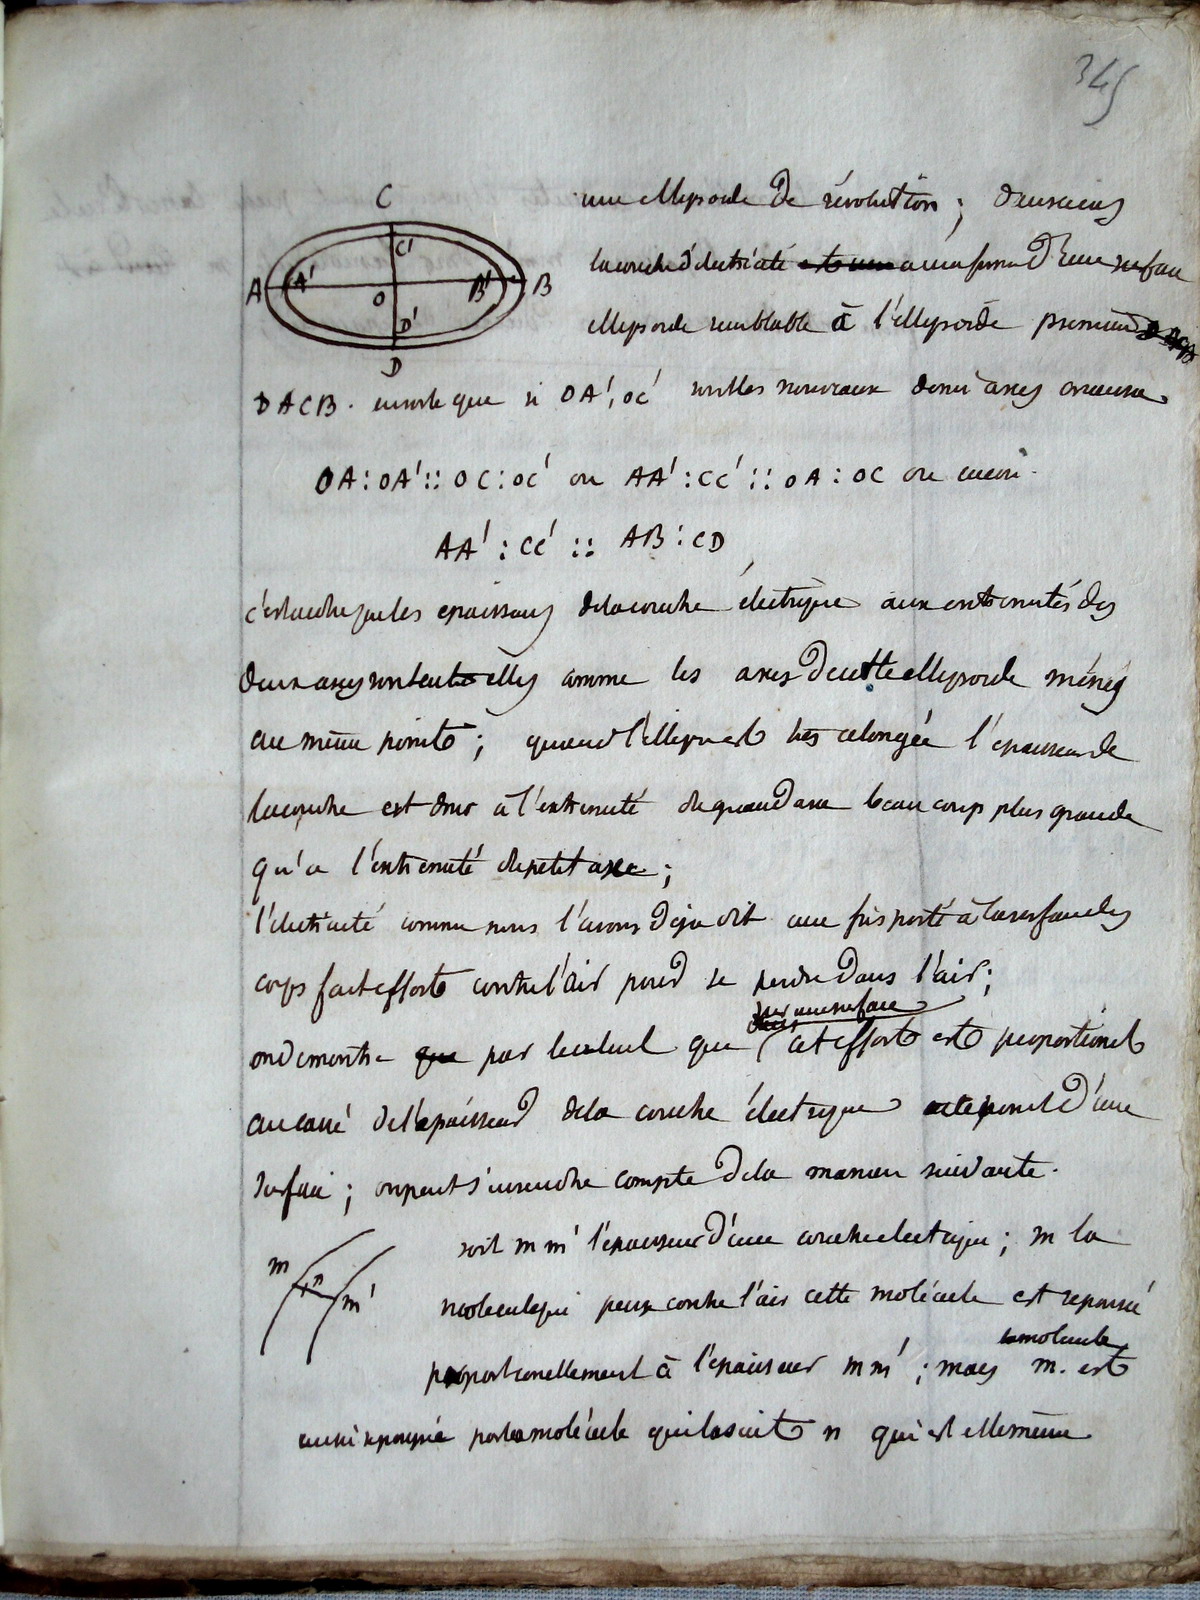 345
C
C'
A A' O B' B
D'
D
une ellipsoide De révolution ;
la couche d'électricité a la forme D'une surface
ellipsoide semblable à l'ellipsoïde premier
DACB. ensorte que si OA', OC' sont les nouveaux demi axes on aura
OA : OA' :: OC : OC' ou AA' : CC' :: OA : OC ou encore
AA' : CC' :: AB : CD
c'est a dire que les epaisseurs dela couche électrique aux extremités des
deux axes sont entre elles comme les axes De cette ellipsoide menés
au même point ; quand l'ellipse est tres alongée l'epaisseur de
la couche est donc à l'extremité du grand axe beaucoup plus grande
qu'a l'extremité du petit axe ;
l'électricité comme nous l'avons Deja dit une fois porté à la surface des
corps fait effort contre l'air pour se perdre Dans l'air ;
sur une surface
on demontre que par le calcul que cet effort est proportionel
au carré De l'épaisseur dela couche électrique D'une
surface ; on peut s'en rendre compte Dela maniere suivante.
soit mm' l'épaisseur D'une couche electrique ; m la
m n m'
molecule qui pese contre l'air cette molécule est repoussé
la molecule
proportionellement à l'epaisseur mm' ; mais m. est
aussi repoussé par la molécule qui la suit n qui est elle même